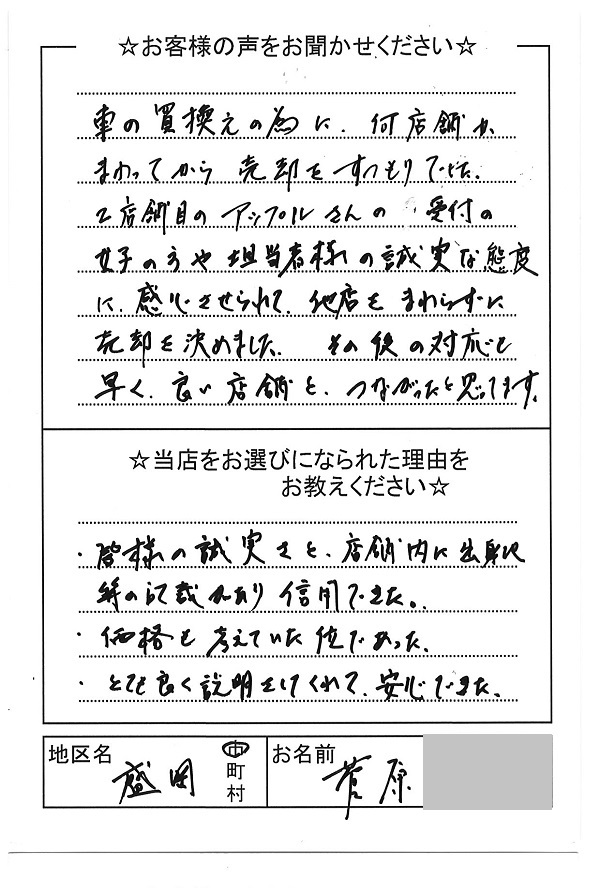 ☆お客様の声をお聞かせください☆
車の買換えの為に、何店舗か
まわってから 売却をするつもりでした。
2店舗目の アップルさんの 受付の
女子の方や担当者様の誠実な態度
に、感心させられて、他店をまわらずに
売却を決めました。 その後の対応も
早く、良い店舗と、つながったと思ってます。
☆当店をお選びになられた理由を
お教えください☆
・皆様の誠実さと、店舗内に出身地
等の記載があり 信用できた。
・価格も考えていた位であった。
・とても良く説明をしてくれて、安心できた。
地区名 盛岡 市町村 お名前 菅原